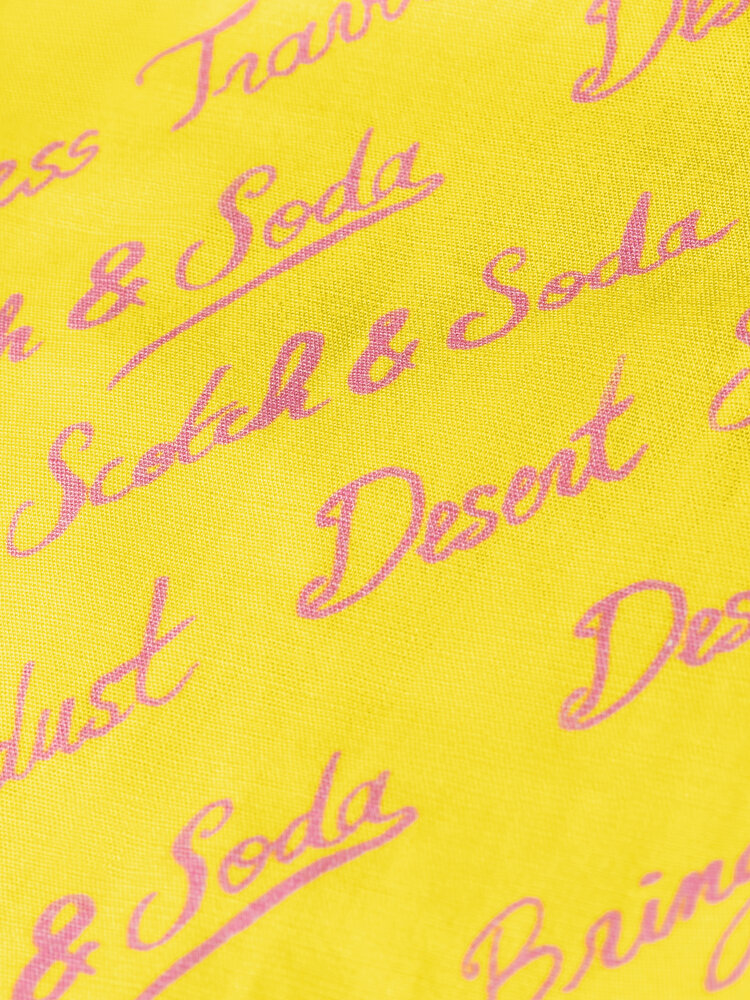 Trav
De
ess
h & Soda
Scotch & Soda
Desert
dust
Des
& Soda
Bring